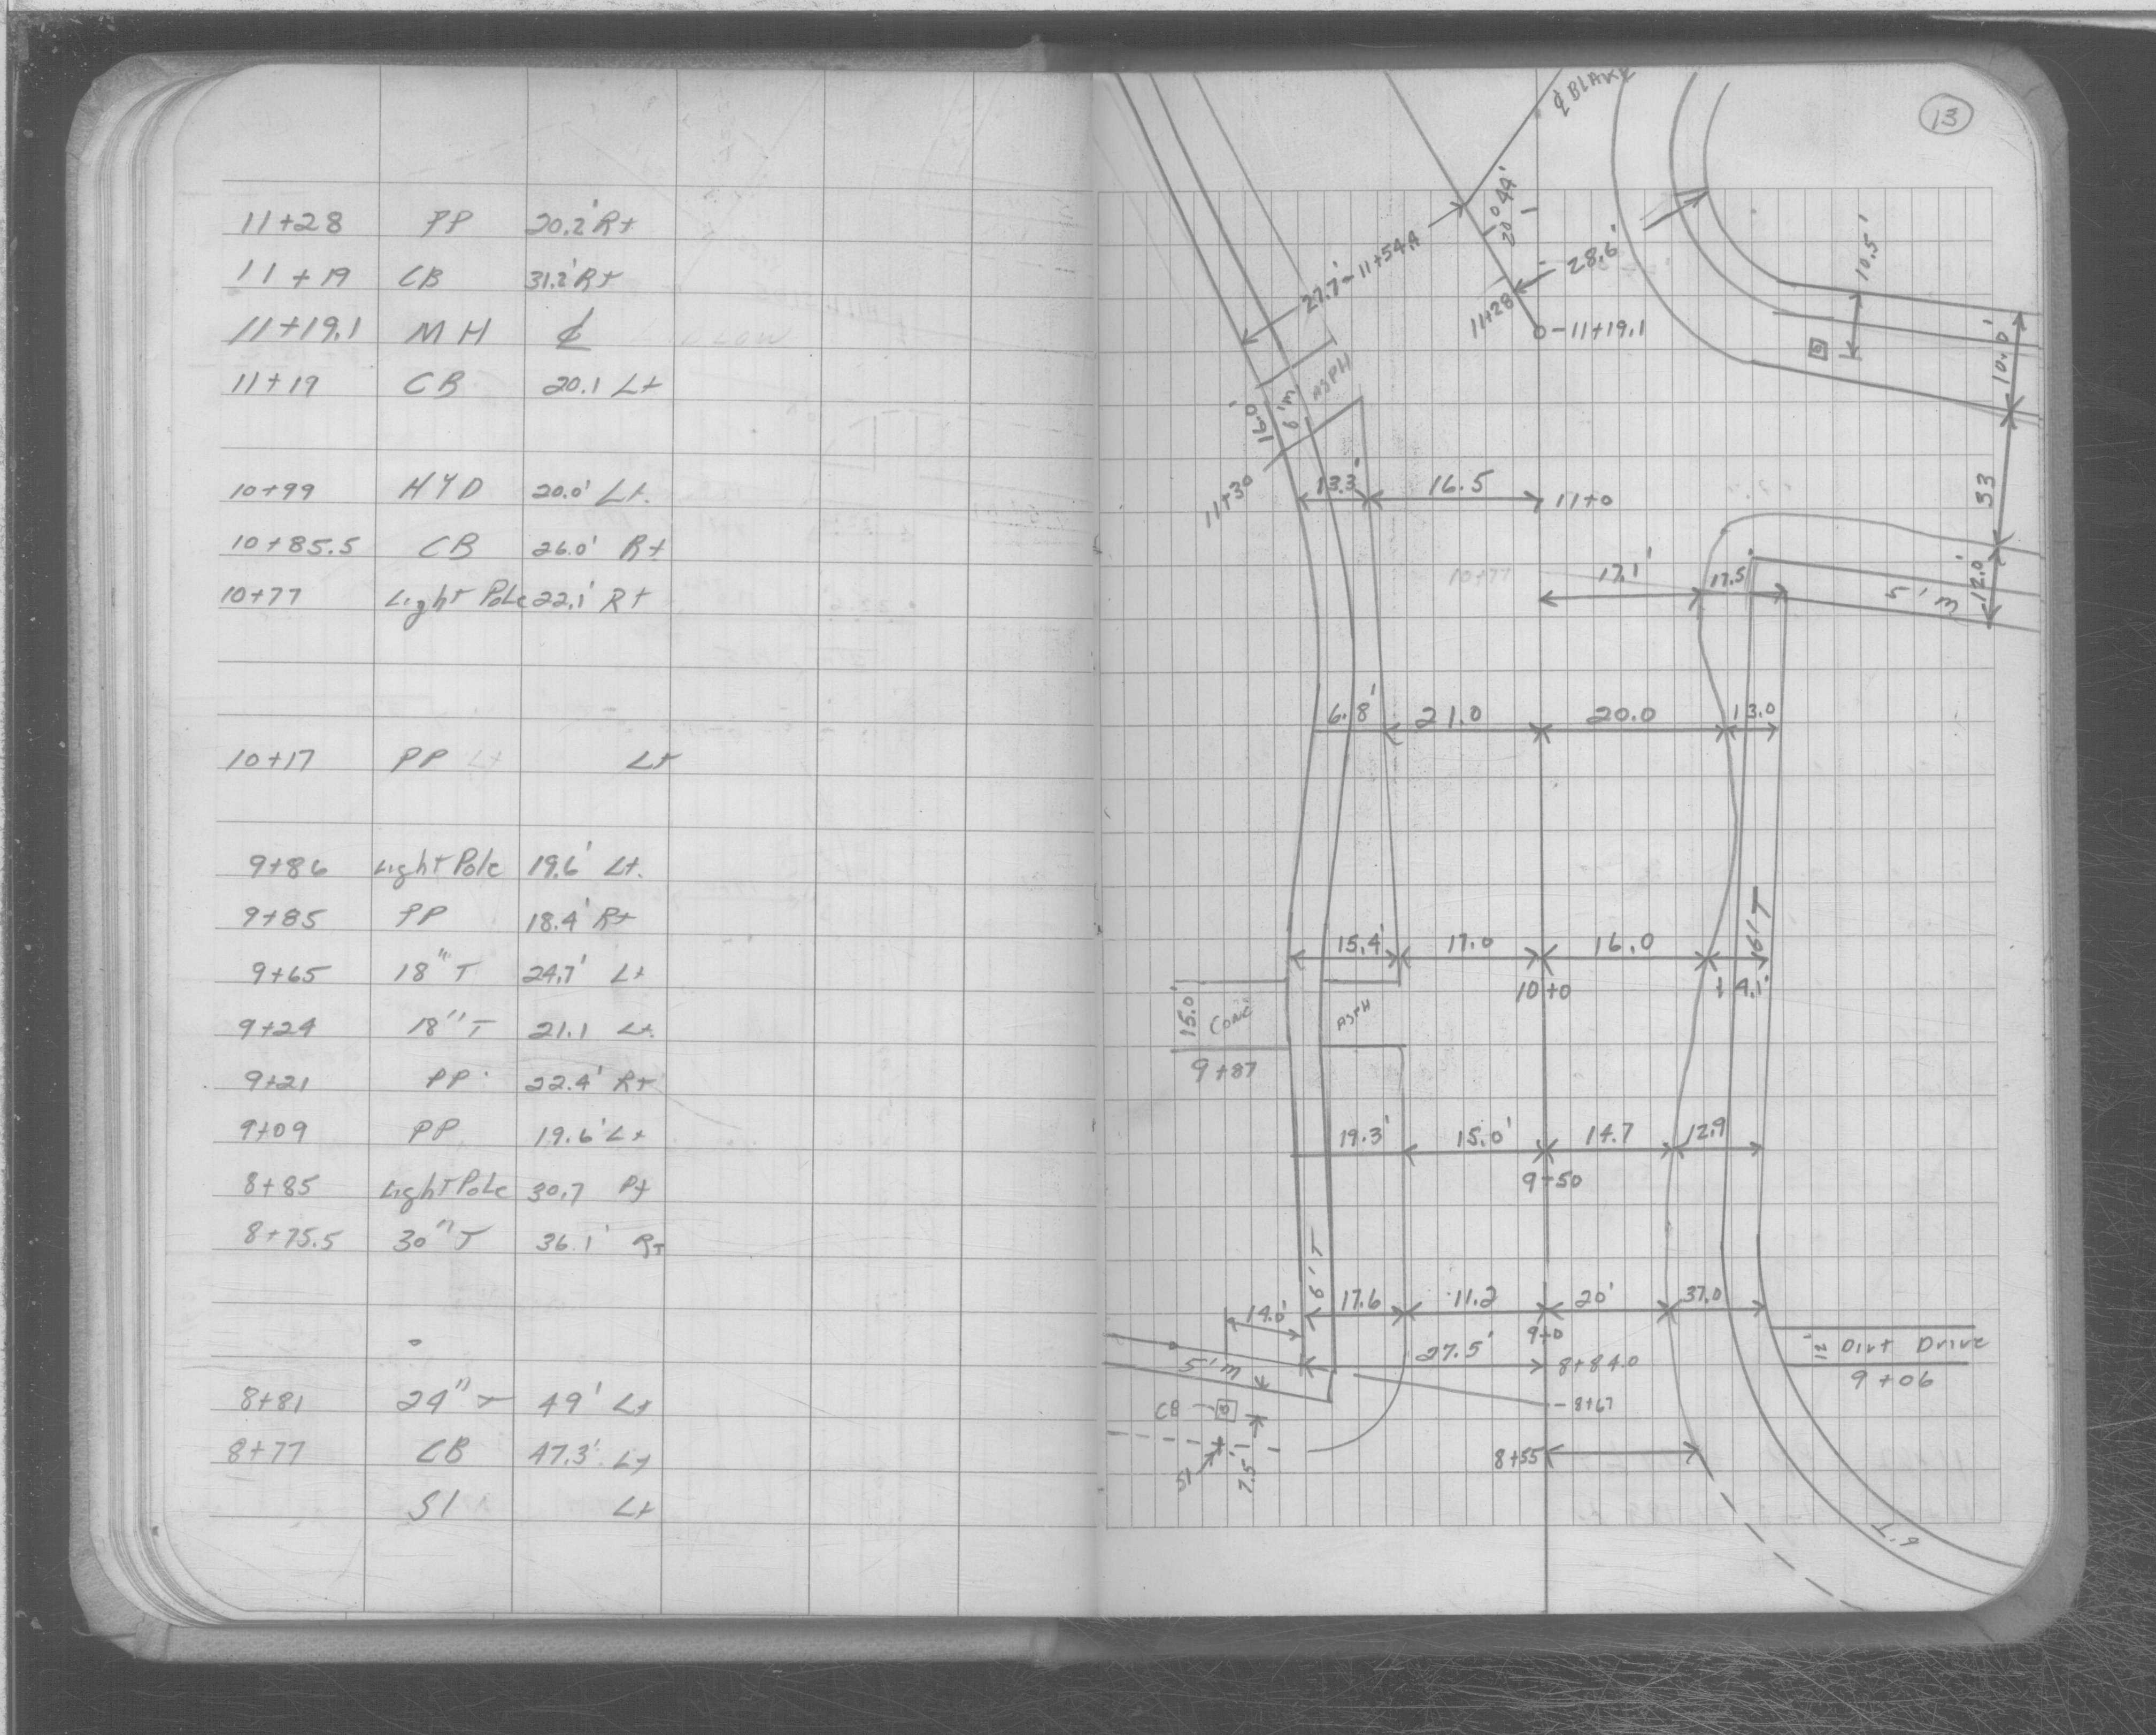 11+28 PP 20.2' Rt
11+19 CB 31.2' Rt
11+19.1 MH ℄
11+19 CB 20.1 Lt
10+99 HYD 20.0' Lt.
10+85.5 CB 26.0' Rt
10+77 Light Pole 22.1' Rt
10+17 PP Lt
9+86 Light Pole 19.6' Lt.
9+85 PP 18.4' Rt
9+65 18" T 24.7' Lt
9+24 18" T 21.1 Lt.
9+21 PP 22.4' Rt
9+09 PP 19.6' Lt
8+85 Light Pole 30.7 Rt
8+75.5 30" T 36.1' Rt
8+81 24" T 49' Lt
8+77 CB 47.3' Lt
SI Lt
13
℄ BLAKE
20° 44'
27.7' 11+54.4
28.6'
10.5'
11+28
11+19.1
10.0'
ASPH
16.0'
6'm
11+30
13.3' 16.5 11+0
33
10+77
17.1' 17.5'
5'm
12.0'
6.8' 21.0 20.0 13.0
6'T
15.4' 17.0 16.0
10+0 14.1'
15.0' Conc ASPH
9+87
19.3' 15.0' 14.7 12.9
9+50
6'T
14.0' 17.6 11.2 20' 37.0
9+0
27.5' 8+84.0
5'm
Dirt Drive
9+06
CB
8+67
8+55
SI
7.5'
6'T